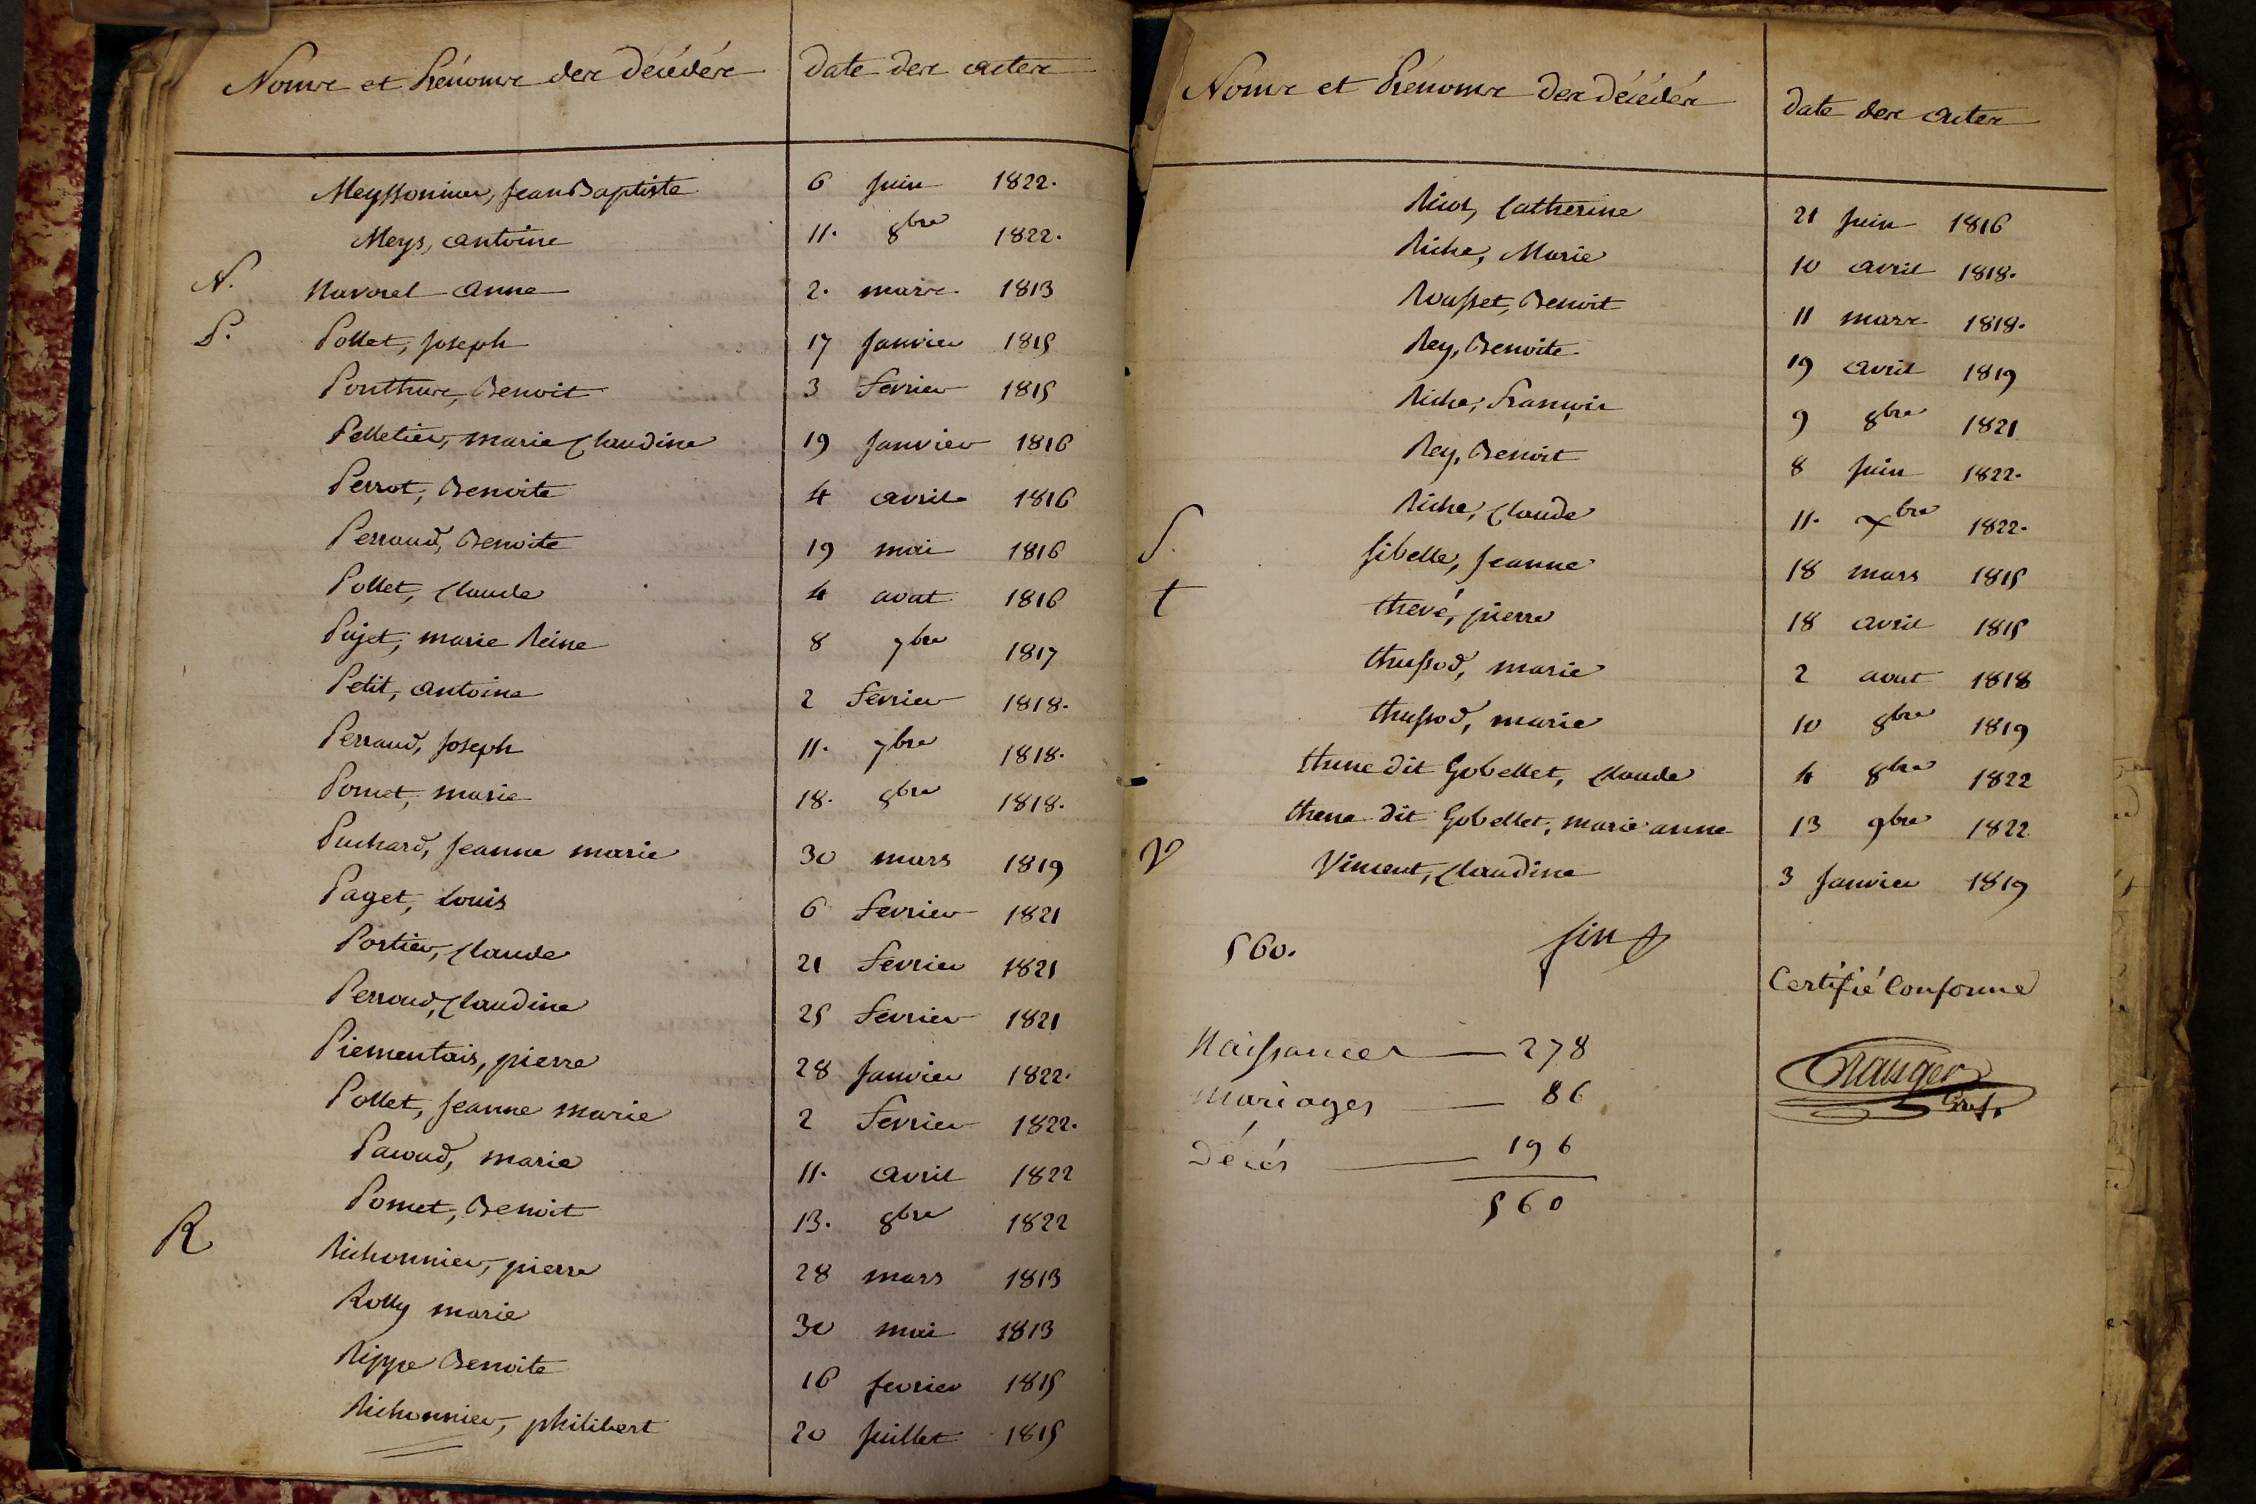 Noms et Prénoms des décédés
Date des actes
Meyssonnier, Jean Baptiste 6 Juin 1822.
Meys, antoine 11. 8bre 1822.
N. Navoret anne 2. mars 1813
P. Pollet, Joseph 17 Janvier 1815
Ponthus, Benoit 3 fevrier 1815
Pelletier, marie Claudine 19 Janvier 1816
Perrot, Benoite 4 avril 1816
Perraud, Benoite 19 mai 1816
Pollet, Claude 4 aout 1816
Pujet, marie Reine 8 7bre 1817
Petit, antoine 2 fevrier 1818.
Perraud, Joseph 11. 7bre 1818.
Pomet, marie 18. 8bre 1818.
Puchard, Jeanne marie 30 mars 1819
Paget, Louis 6 fevrier 1821
Portier, Claude 21 fevrier 1821
Perroud, Claudine 25 fevrier 1821
Piementais, pierre 28 Janvier 1822.
Pollet, Jeanne marie 2 fevrier 1822.
Pacoud, marie 11. avril 1822
Pomet, Benoit 13. 8bre 1822
R Richonnier, pierre 28 mars 1813
Rolly marie 30 mai 1813
Rippe Benoite 16 fevrier 1815
Richonnier, philibert 20 Juillet 1815
Noms et Prénoms des décédés
Date des actes
Catherine 21 Juin 1816
Riche, Marie 10 avril 1818.
Rousset, Benoit 11 mars 1818.
Rey, Benoite 19 avril 1819
Riche, François 9 8bre 1821
Rey, Benoit 8 Juin 1822.
Riche, Claude 11. Xbre 1822.
S. Sibelle, Jeanne 18 mars 1815
t thevé, pierre 18 avril 1815
thussod, marie 2 aout 1818
thussod, marie 10 8bre 1819
thene dit Gobellet, Claude 4 8bre 1822
thene dit Gobellet, marie anne 13 9bre 1822
V Vincent, Claudine 3 Janvier 1819
560. fin
Certifié Conforme
Naissances 278
mariages 86
Décés 196
560
Granger
Gref.